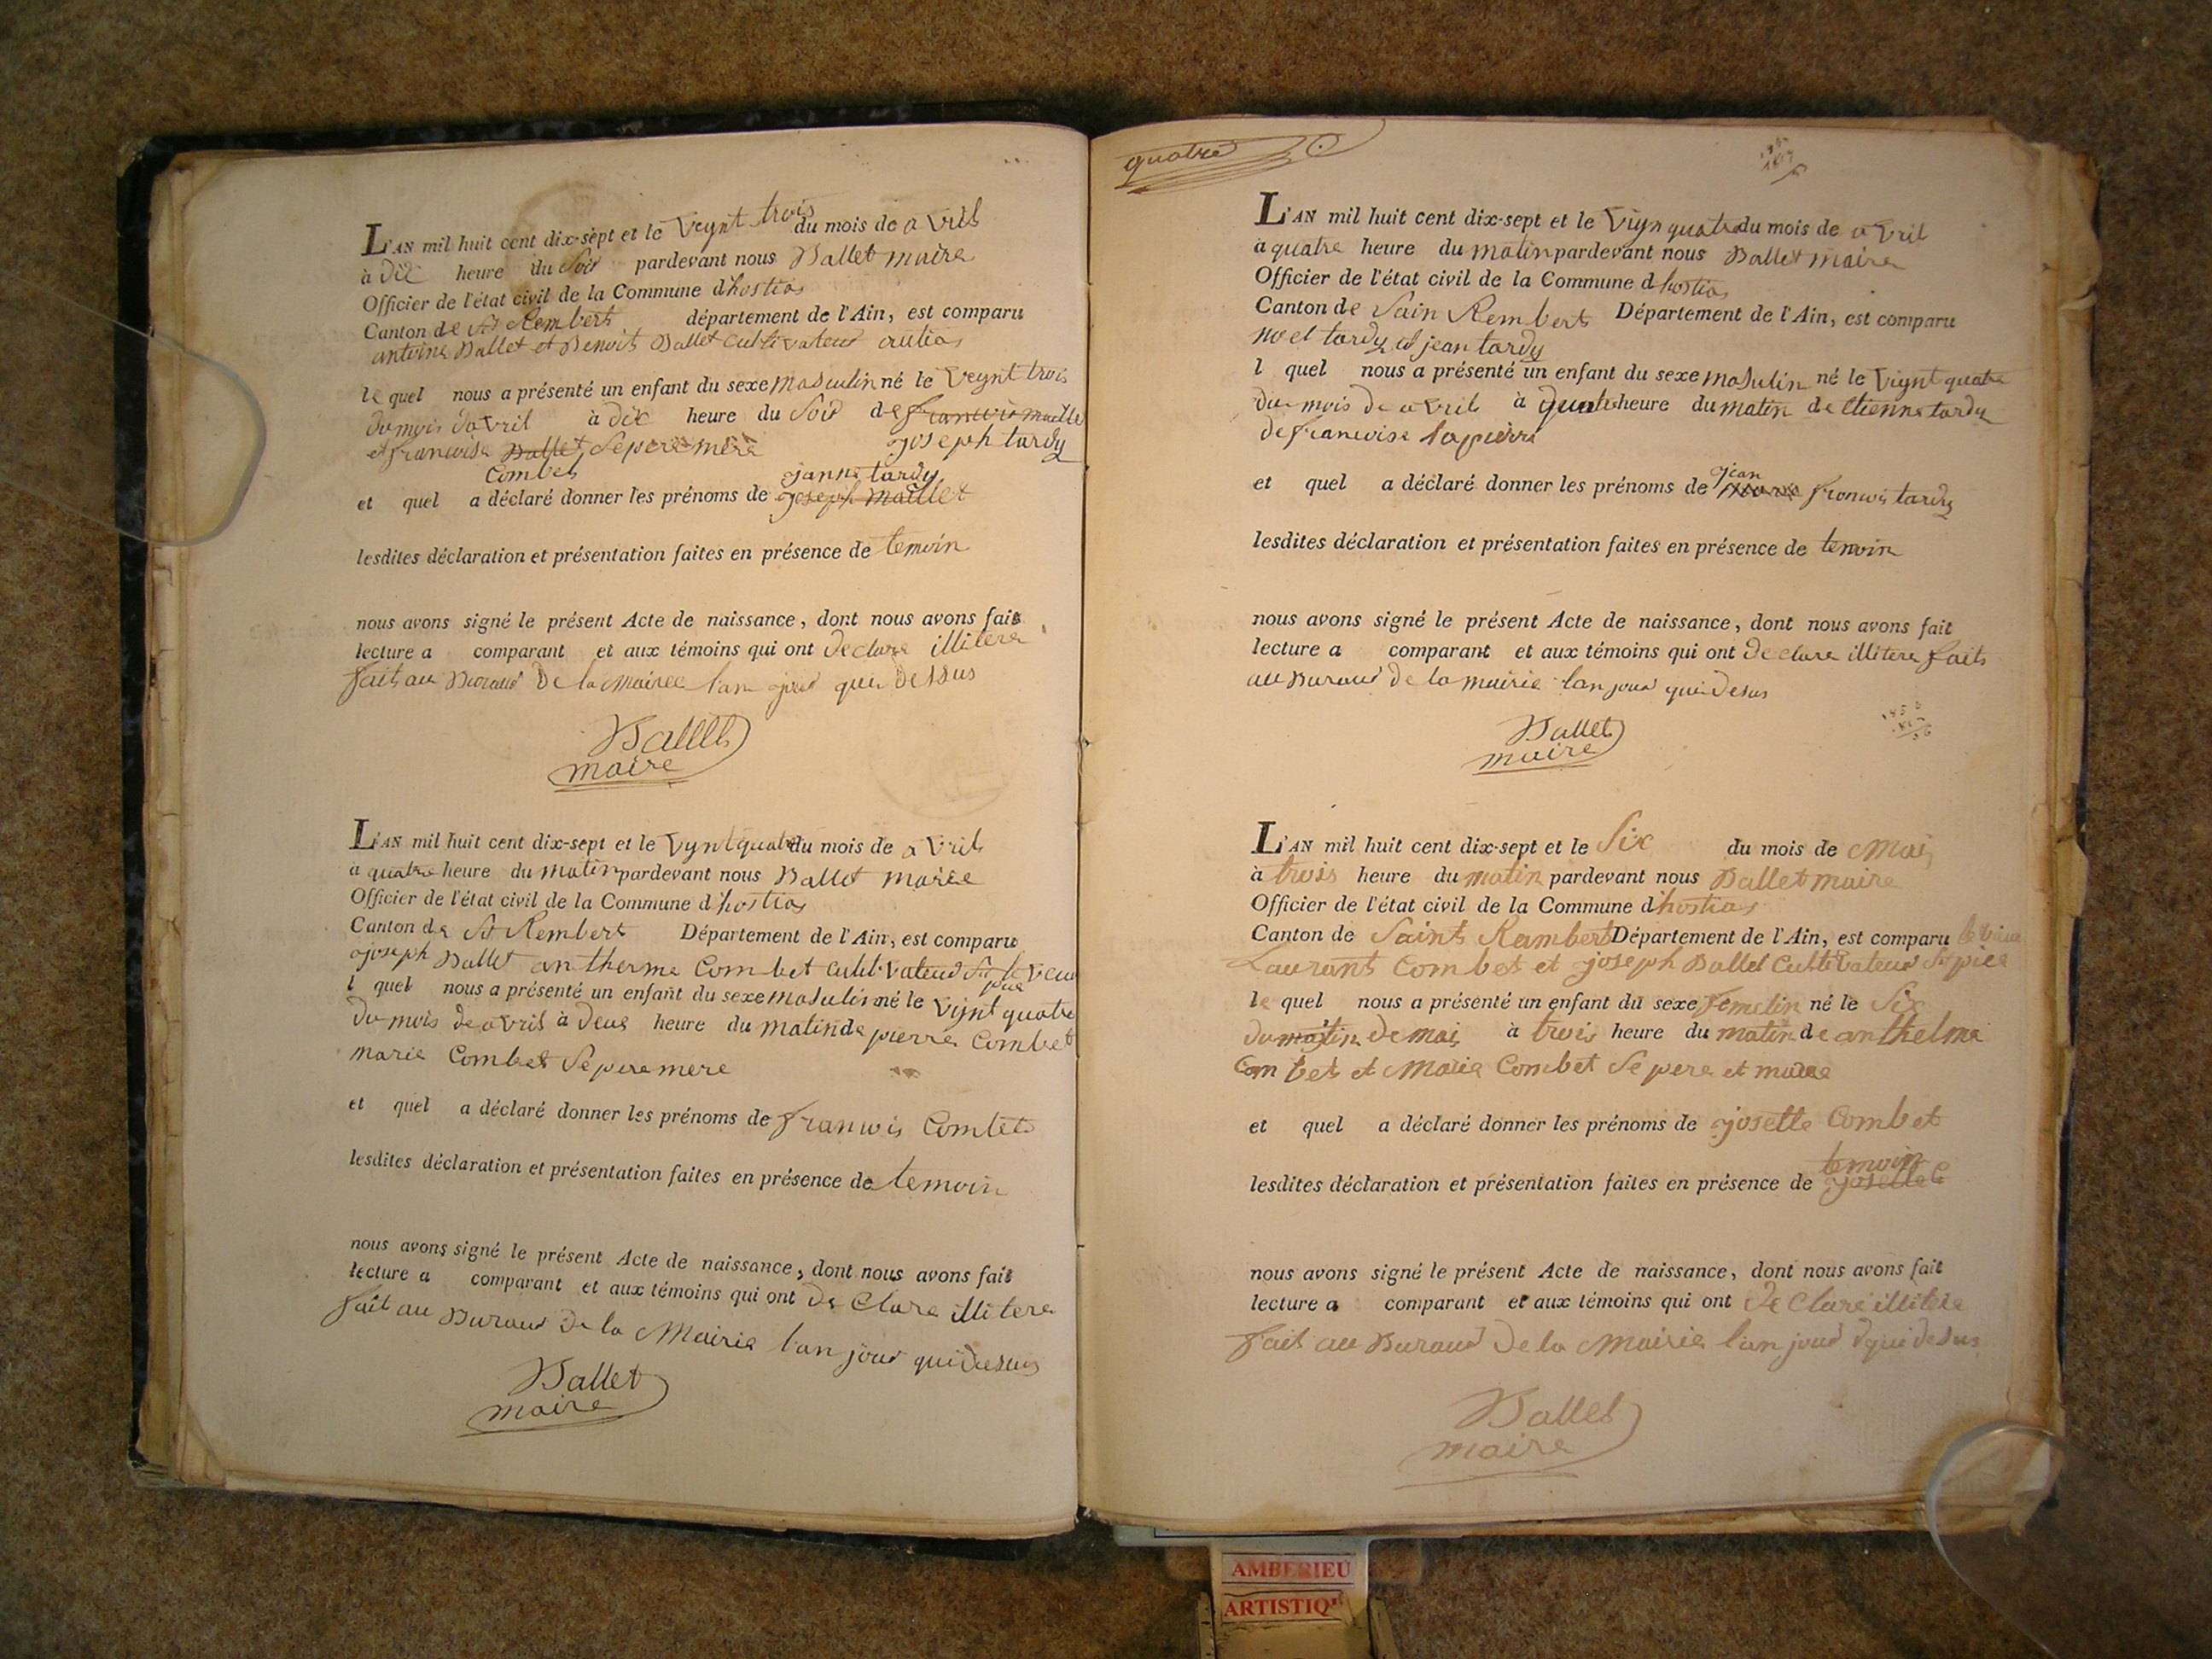 L'AN mil huit cent dix-sept et le veynt trois du mois de avril
à dix heure du soir pardevant nous Ballet maire
Officier de l'état civil de la Commune d'hostias
Canton de St Rembert département de l'Ain, est comparu
antoine Ballet et Benoit Ballet cultivateur
le quel nous a présenté un enfant du sexe masculin né le veynt trois
du mois davril à dix heure du soir de francois maillet
et francoise Ballet Se pere mere joseph tardy
Combet janne tardy
et quel a déclaré donner les prénoms de joseph maillet
lesdites déclaration et présentation faites en présence de temoin
nous avons signé le présent Acte de naissance, dont nous avons fait
lecture a comparant et aux témoins qui ont declare illitere
fait au Buraud De la mairee l'an jour qui Dessus
Ballet
maire
L'AN mil huit cent dix-sept et le vynt quatre du mois de avril
à quatre heure du matin pardevant nous Ballet maire
Officier de l'état civil de la Commune d'hostias
Canton de St Rembert Département de l'Ain, est comparu
joseph Ballet antherme Combet cultivateur
l quel nous a présenté un enfant du sexe masulin né le vijnt quatre
du mois de avril à deus heure du matin de pierre Combet
marie Combet Se pere mere
et quel a déclaré donner les prénoms de francois Combet
lesdites déclaration et présentation faites en présence de temoin
nous avons signé le présent Acte de naissance, dont nous avons fait
lecture a comparant et aux témoins qui ont de Clare illitere
fait au Buraud De la Mairie l'an jour qui desus
Ballet
maire
quatre
L'AN mil huit cent dix-sept et le viyn quatre du mois de avril
à quatre heure du matin pardevant nous Ballet maire
Officier de l'état civil de la Commune d'hostias
Canton de Sain Rembert Département de l'Ain, est comparu
noel tardy et jean tardy
l quel nous a présenté un enfant du sexe masulin né le viynt quatre
du mois de avril à quatre heure du matin de Etienne tardy
de francoise lapierre
jean
et quel a déclaré donner les prénoms de francois tardy
lesdites déclaration et présentation faites en présence de temoin
nous avons signé le présent Acte de naissance, dont nous avons fait
lecture a comparant et aux témoins qui ont declare illitere fait
au Buraud De la mairie l'an jour qui Desus
Ballet
maire
L'AN mil huit cent dix-sept et le Six du mois de Mai
à trois heure du matin pardevant nous Ballet maire
Officier de l'état civil de la Commune d'hostias
Canton de Saint Rambert Département de l'Ain, est comparu
Laurant Combet et joseph Ballet Cultivateur
le quel nous a présenté un enfant du sexe femelin né le Six
du matin de mai à trois heure du matin de anthelme
Combet et Marie Combet Se pere et mere
et quel a déclaré donner les prénoms de josette Combet
temoin
lesdites déclaration et présentation faites en présence de josette C
nous avons signé le présent Acte de naissance, dont nous avons fait
lecture a comparant et aux témoins qui ont de Clare illitere
fait au Buraud De la Mairie l'an jour qui desus
Ballet
maire
AMBERIEU
ARTISTIQ